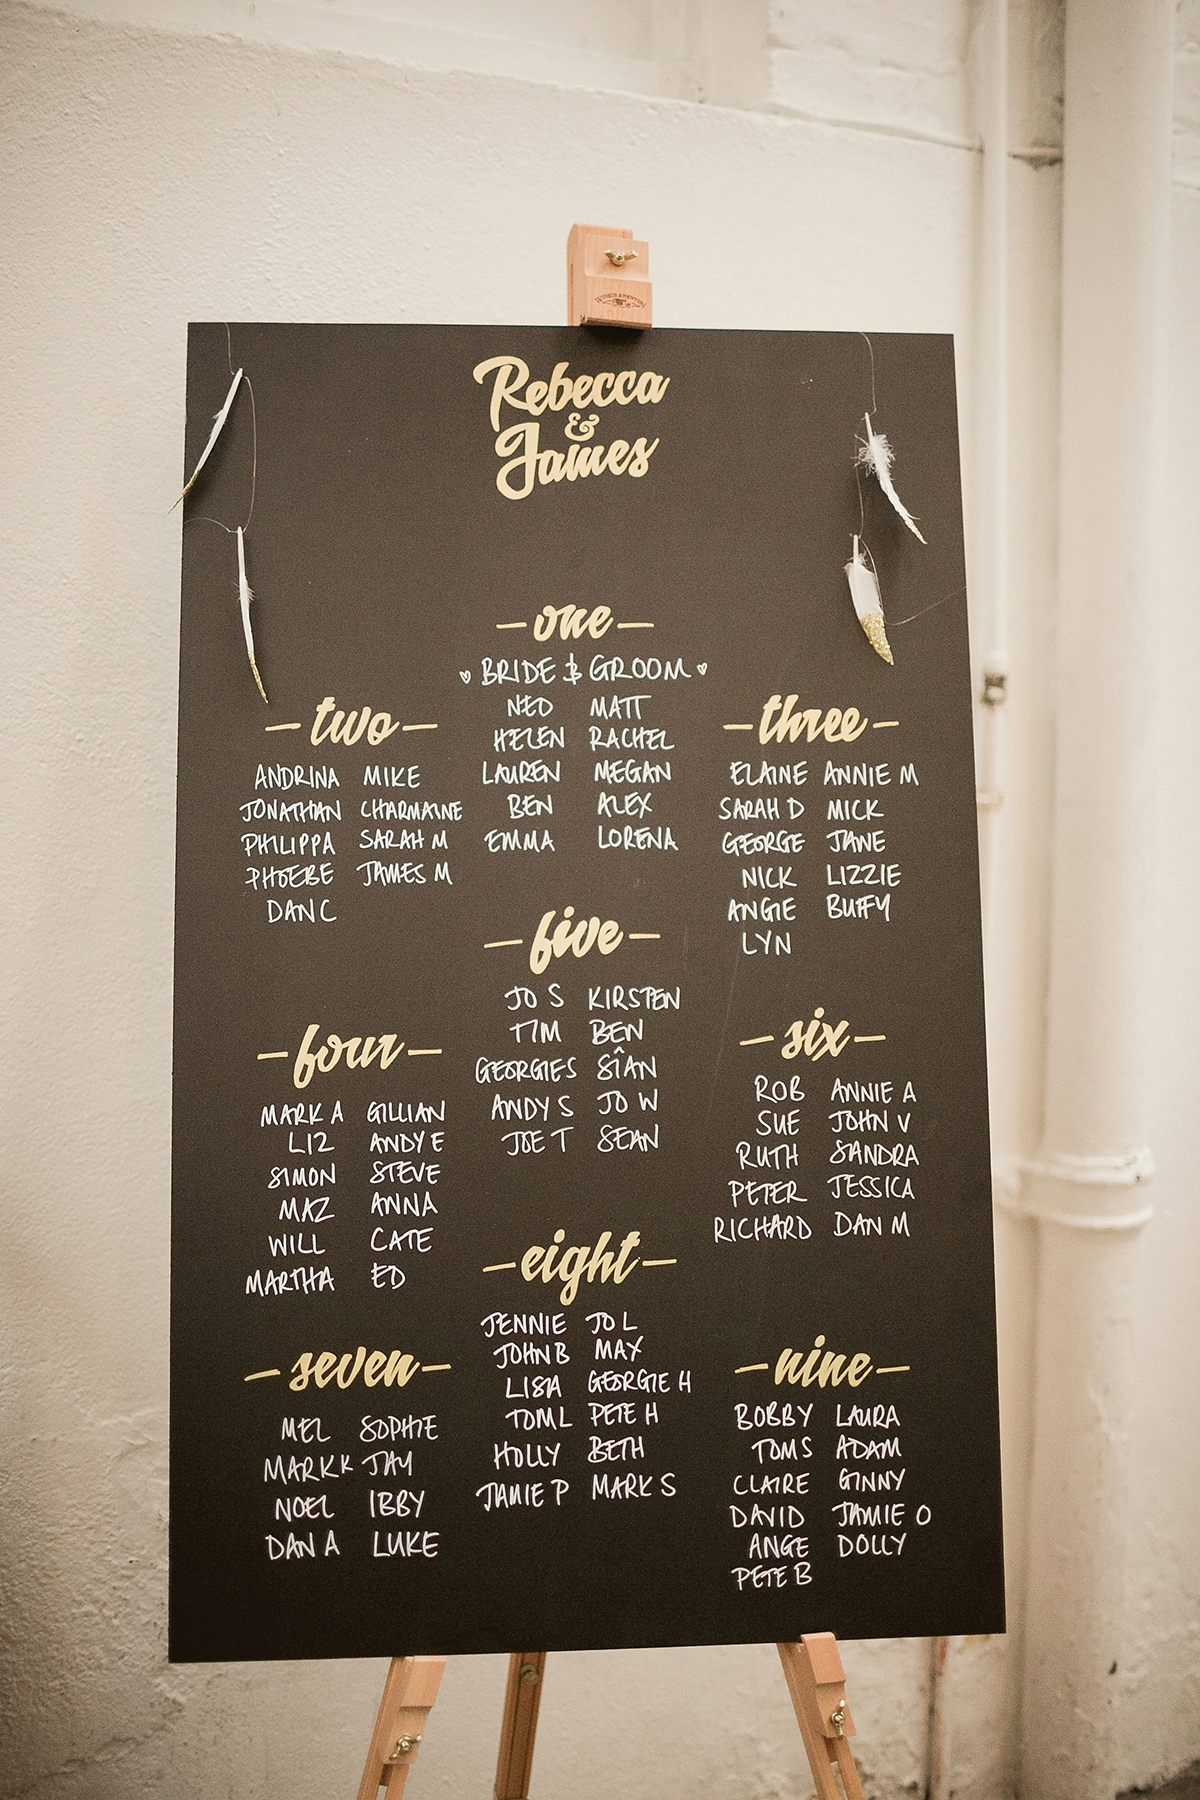 WINSOR & NEWTON
Rebecca
&
James
-one-
BRIDE & GROOM
NED MATT
HELEN RACHEL
LAUREN MEGAN
BEN ALEX
EMMA LORENA
-two-
ANDRINA MIKE
JONATHAN CHARMAINE
PHILIPPA SARAH M
PHOEBE JAMES M
DAN C
-three-
ELAINE ANNIE M
SARAH D MICK
GEORGE JANE
NICK LIZZIE
ANGIE BUFFY
LYN
-four-
MARK A GILLIAN
LIZ ANDY E
SIMON STEVE
MAZ ANNA
WILL CATE
MARTHA ED
-five-
JO S KIRSTEN
TIM BEN
GEORGIE S SÎAN
ANDY S JO W
JOE T SEAN
-six-
ROB ANNIE A
SUE JOHN V
RUTH SANDRA
PETER JESSICA
RICHARD DAN M
-seven-
MEL SOPHIE
MARK K JAY
NOEL IBBY
DAN A LUKE
-eight-
JENNIE JO L
JOHN B MAX
LISA GEORGIE H
TOM L PETE H
HOLLY BETH
JAMIE P MARK S
-nine-
BOBBY LAURA
TOM S ADAM
CLAIRE GINNY
DAVID JAMIE O
ANGE DOLLY
PETE B